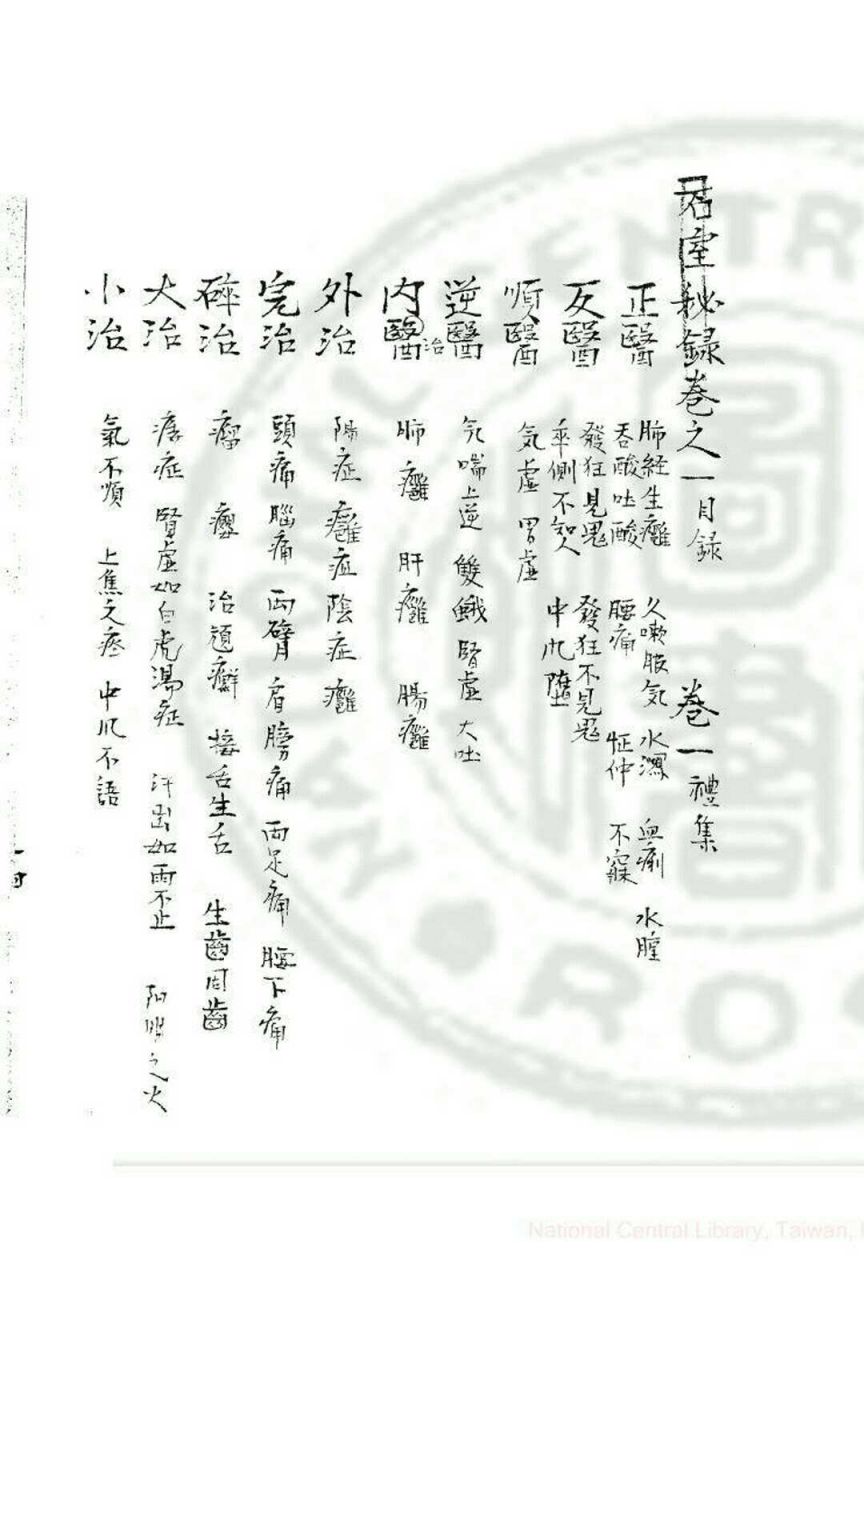 石室秘録巻之一目録 巻一禮集
正醫 肺経生癰 久嗽服気 水瀉 血痢 水膣
吞酸吐酸 腰痛 怔仲 不寐
反醫 發狂見鬼 發狂不見鬼
卒倒不知人 中風堕
順醫 気虚 胃虚
逆醫 気喘上逆 雙蛾 腎虚 大吐
内醫治 肺癰 肝癰 腸癰
外治 陽症癰疽 陰症癰
完治 頭痛 腦痛 両臂肩膀痛 両足痛 腰下痛
碎治 瘤 癭 治頑癬 接舌生舌 生齒固齒
大治 痿症 腎虚如白虎湯症 汗出如雨不止 阳明之火
小治 氣不順 上焦之疼 中風不語
National Central Library, Taiwan,